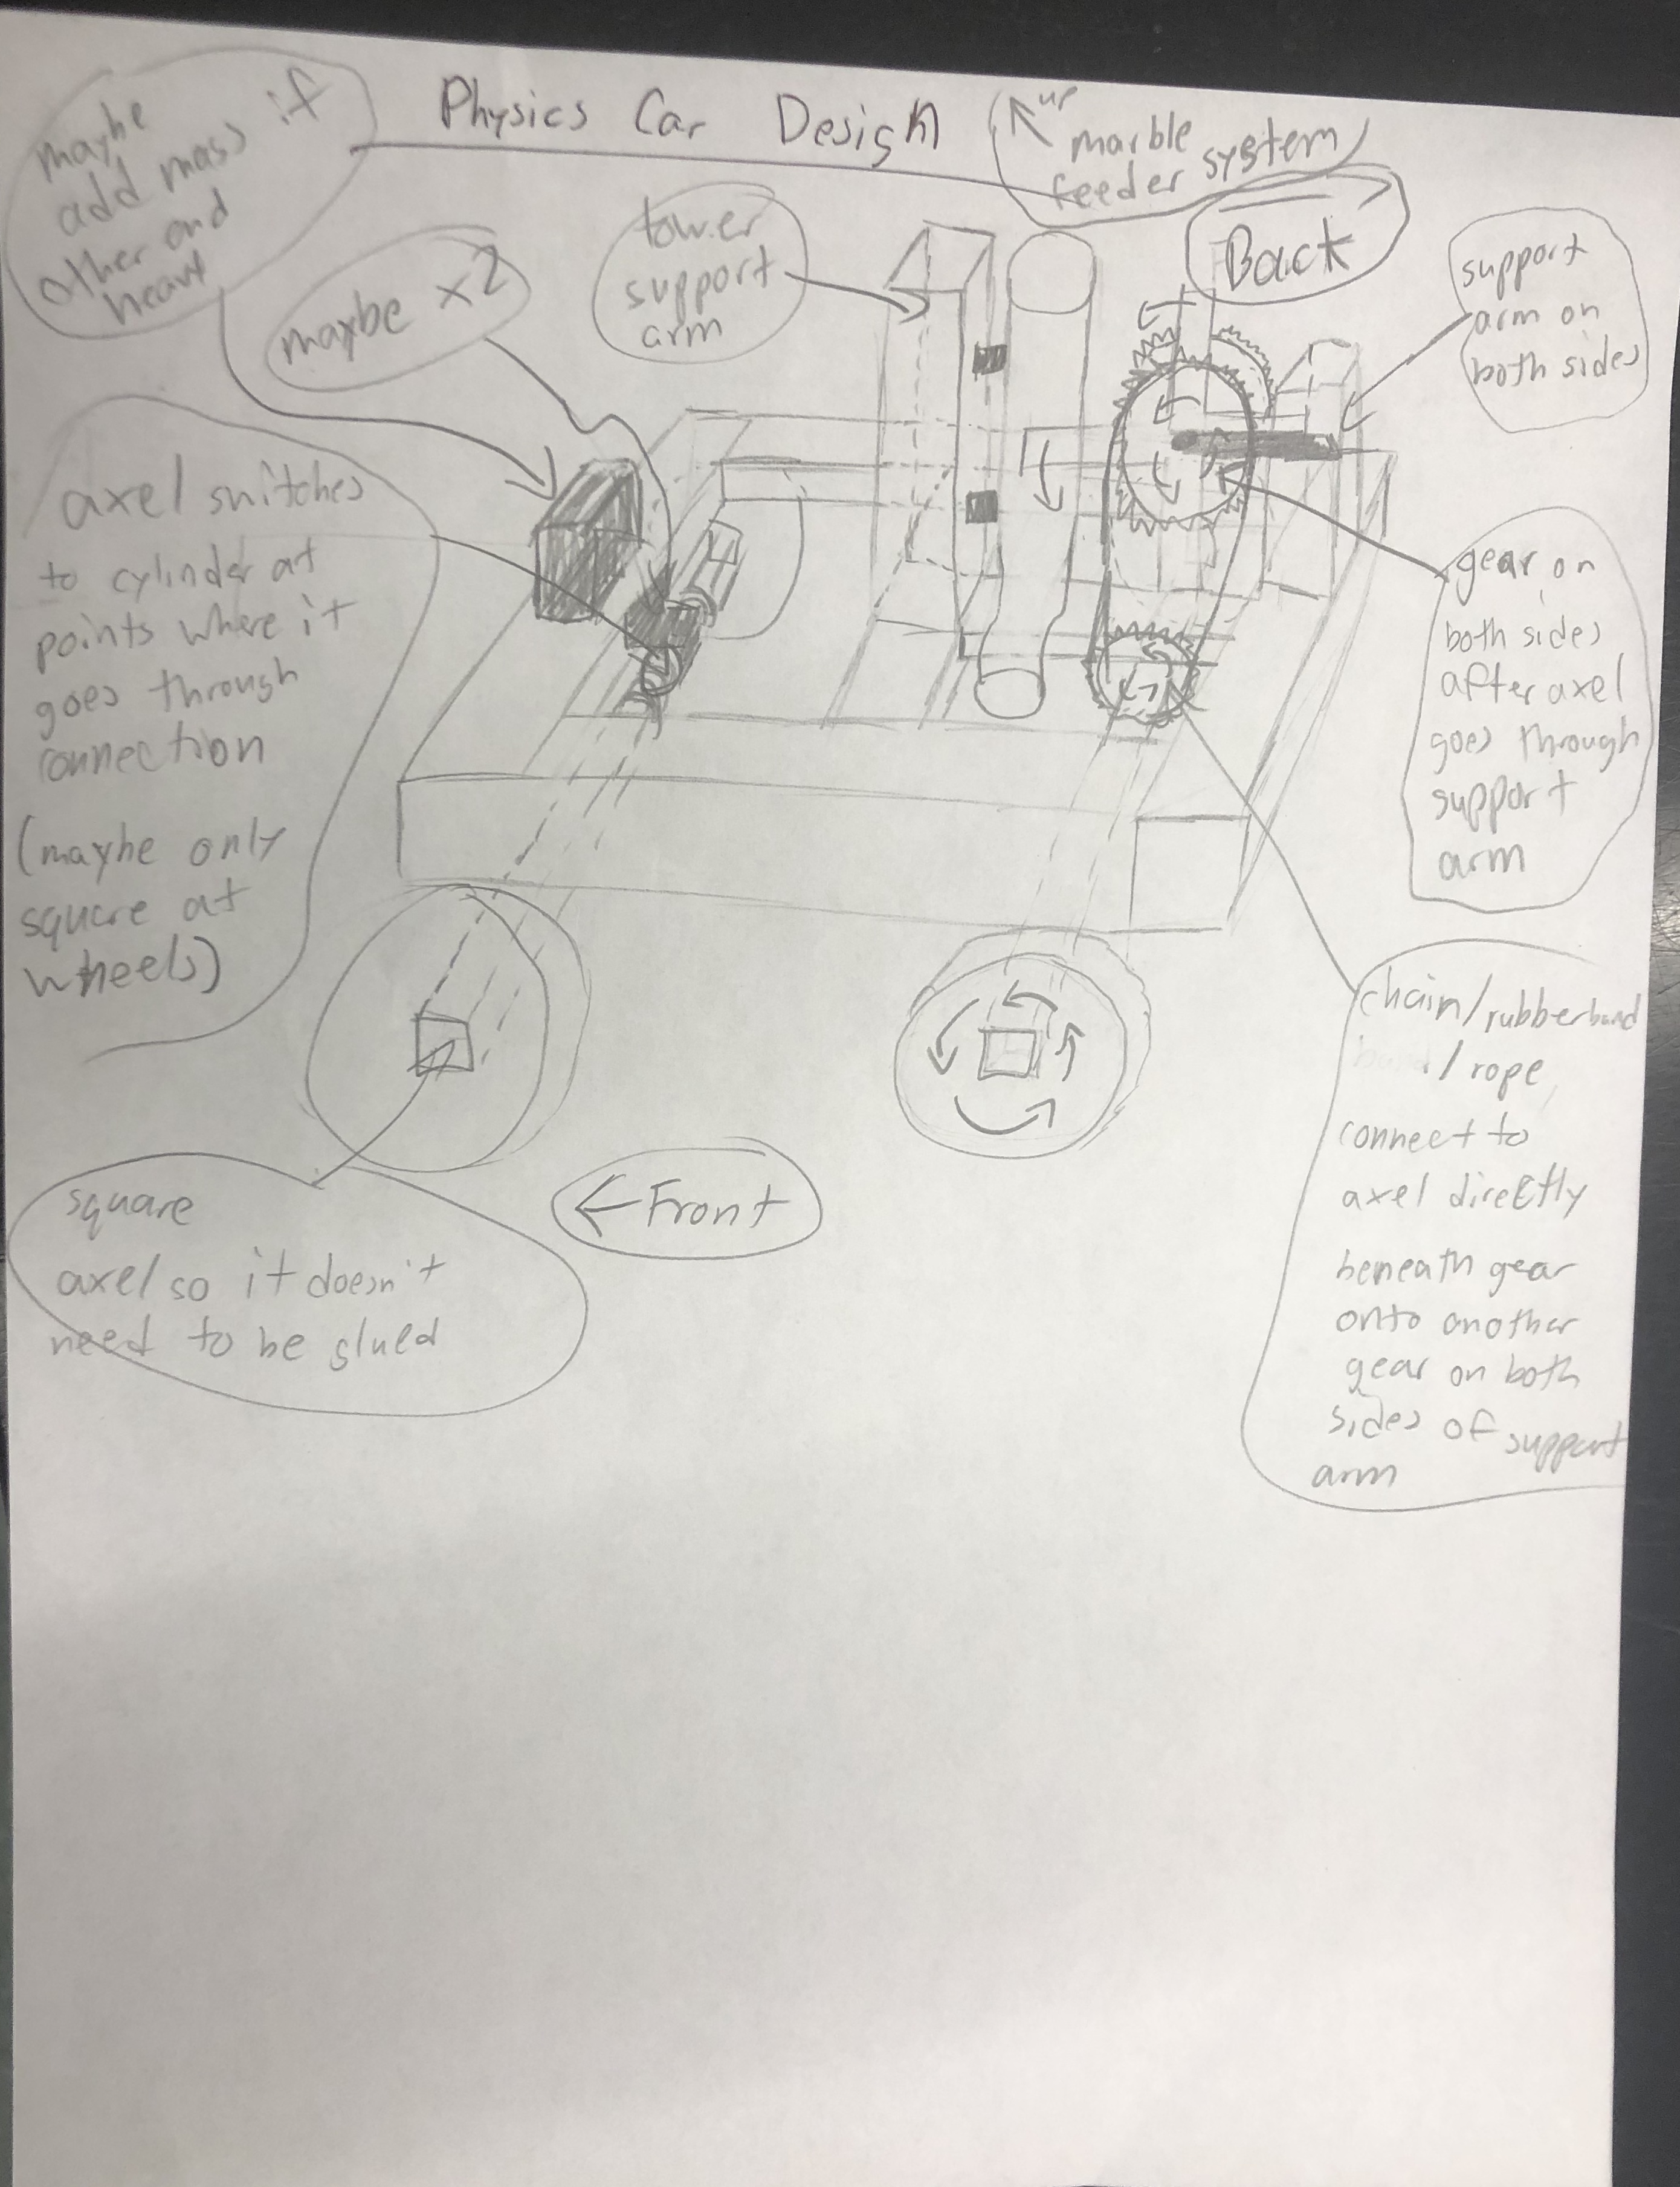 Physics Car Design
↑ up
marble
feeder system
maybe
add mass if
other end
heavy
maybe x2
tower
support
arm
Back
support
arm on
both sides
axel switches
to cylinder at
points where it
goes through
connection
(maybe only
square at
wheels)
gear on
both sides
after axel
goes through
support
arm
chain/rubberband
/rope
connect to
axel directly
beneath gear
onto another
gear on both
sides of support
arm
square
axel so it doesn't
need to be glued
←Front